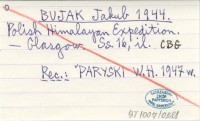 BUJAK Jakub 1944.
Polish Himalayan Expedition.
— Glasgow. Ss. 16, il. CBG
Rec.: PARYSKI W.H. 1947 w.